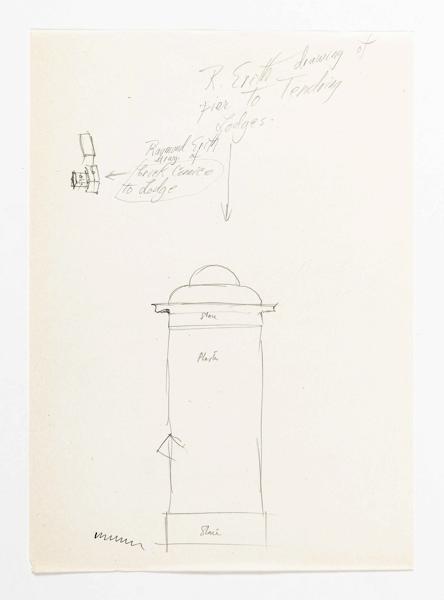 R. Erith drawing of
pier to Tendring
Lodges.
Raymond Erith
drwg. of
brick Cornice
to Lodge
Stone
Plaster
Stone